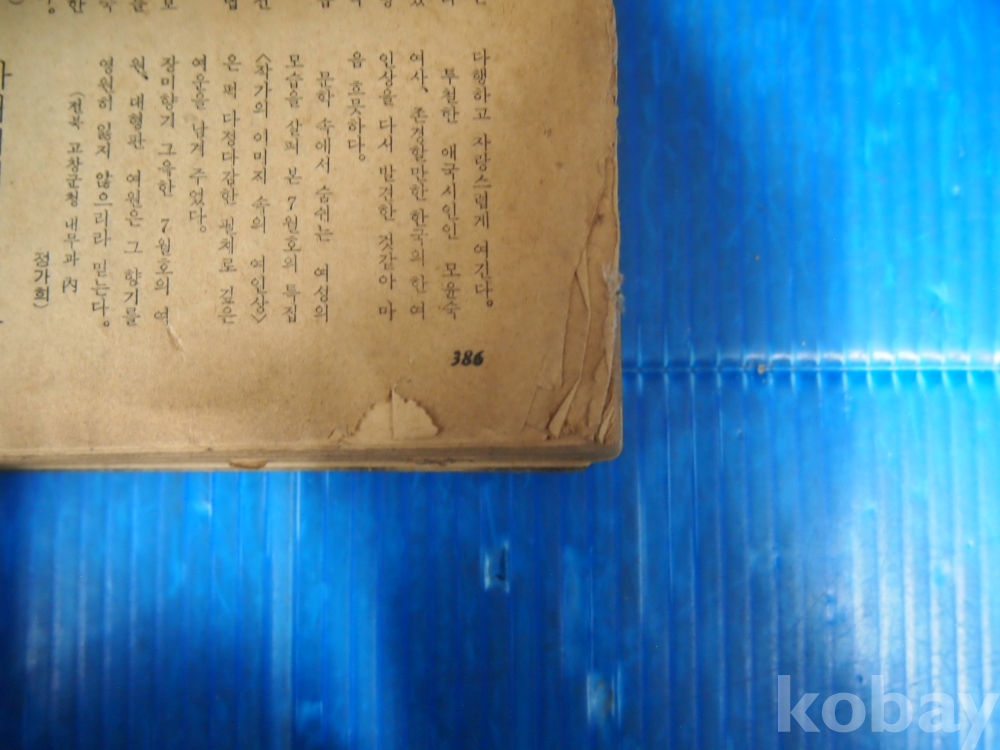 다행하고 자랑스럽게 여긴다.
투철한 애국시인인 모윤숙
여사, 존경할만한 한국의 한 여
인상을 다시 발견한 것같아 마
음 흐뭇하다.
문학 속에서 숨쉬는 여성의
모습을 살펴 본 7월호의 특집
〈작가의 이미지 속의 여인상〉
은 퍽 다정다감한 필체로 깊은
여운을 남겨 주었다.
장미향기 그윽한 7월호의 여
원, 대형판 여원은 그 향기를
영원히 잃지 않으리라 믿는다.
(전북 고창군청 내무과 內
정가희)
386
kobay